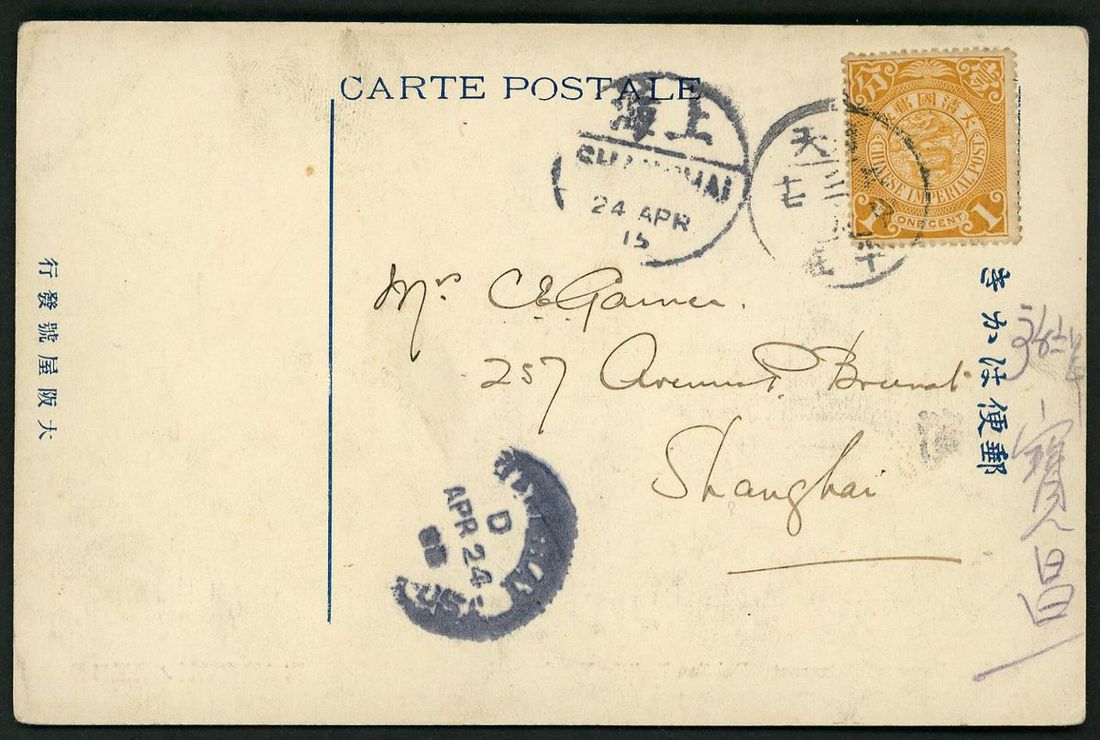 CARTE POSTALE
海上
SHANGHAI
24 APR
15
天
三
七
分 壹
大清國郵
CHINESE IMPERIAL POST
1 ONE CENT 1
Mrs C E
257 Avenue Brunat
Shanghai
郵便はかき
寶昌
大阪屋號發行
D
APR 24